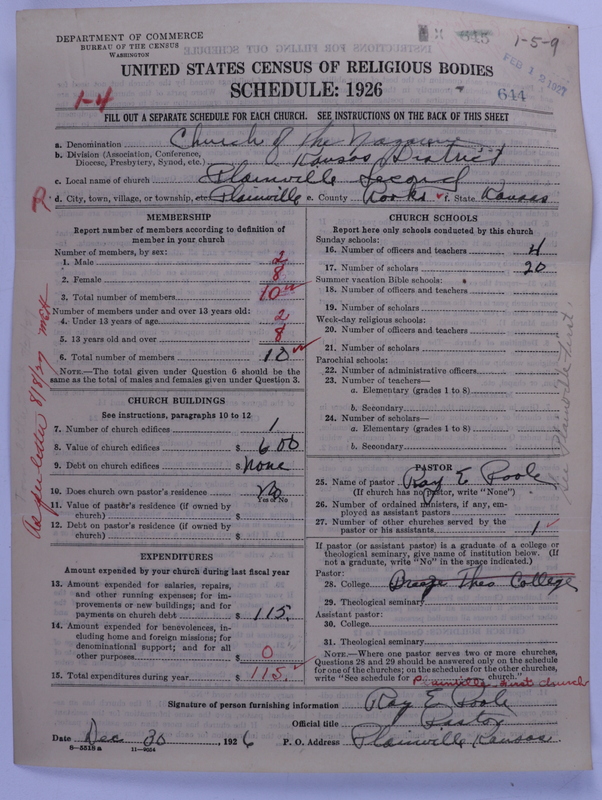 DEPARTMENT OF COMMERCE
BUREAU OF THE CENSUS
WASHINGTON
1-5-9
FEB 12 1927
UNITED STATES CENSUS OF RELIGIOUS BODIES
SCHEDULE: 1926
1-4
644
FILL OUT A SEPARATE SCHEDULE FOR EACH CHURCH. SEE INSTRUCTIONS ON THE BACK OF THIS SHEET
a. Denomination Church of the Nazarene
b. Division (Association, Conference, Diocese, Presbytery, Synod, etc.) Kansas District
c. Local name of church Plainville Second
d. City, town, village, or township, etc. Plainville e. County Rooks f. State Kansas
MEMBERSHIP
Report number of members according to definition of member in your church
Number of members, by sex:
1. Male 2
2. Female 8
3. Total number of members 10
Number of members under and over 13 years old:
4. Under 13 years of age 2
5. 13 years old and over 8
6. Total number of members 10
NOTE.—The total given under Question 6 should be the same as the total of males and females given under Question 3.
CHURCH BUILDINGS
See instructions, paragraphs 10 to 12
7. Number of church edifices 1
8. Value of church edifices $ 600
9. Debt on church edifices $ none
10. Does church own pastor's residence No
Yes or No
11. Value of pastor's residence (if owned by church) $
12. Debt on pastor's residence (if owned by church) $
EXPENDITURES
Amount expended by your church during last fiscal year
13. Amount expended for salaries, repairs, and other running expenses; for improvements or new buildings; and for payments on church debt $ 115.
14. Amount expended for benevolences, including home and foreign missions; for denominational support; and for all other purposes $ 0
15. Total expenditures during year $ 115.
CHURCH SCHOOLS
Report here only schools conducted by this church
Sunday schools:
16. Number of officers and teachers 4
17. Number of scholars 20
Summer vacation Bible schools:
18. Number of officers and teachers
19. Number of scholars
Week-day religious schools:
20. Number of officers and teachers
21. Number of scholars
Parochial schools:
22. Number of administrative officers
23. Number of teachers—
a. Elementary (grades 1 to 8)
b. Secondary
24. Number of scholars—
a. Elementary (grades 1 to 8)
b. Secondary
PASTOR
25. Name of pastor Ray E Poole
(If church has no pastor, write "None")
26. Number of ordained ministers, if any, employed as assistant pastors
27. Number of other churches served by the pastor or his assistants 1
If pastor (or assistant pastor) is a graduate of a college or theological seminary, give name of institution below. (If not a graduate, write "No" in the space indicated.)
Pastor:
28. College Bresee Theo College
29. Theological seminary
Assistant pastor:
30. College
31. Theological seminary
NOTE.—Where one pastor serves two or more churches, Questions 28 and 29 should be answered only on the schedule for one of the churches; on the schedules for the other churches, write "See schedule for Plainville first church church."
Signature of person furnishing information Ray E Poole
Official title Pastor
Date Dec 30, 1926 P. O. Address Plainville Kansas
8—5518a 11—9054
As per letter 8/8/27
See Plainville First